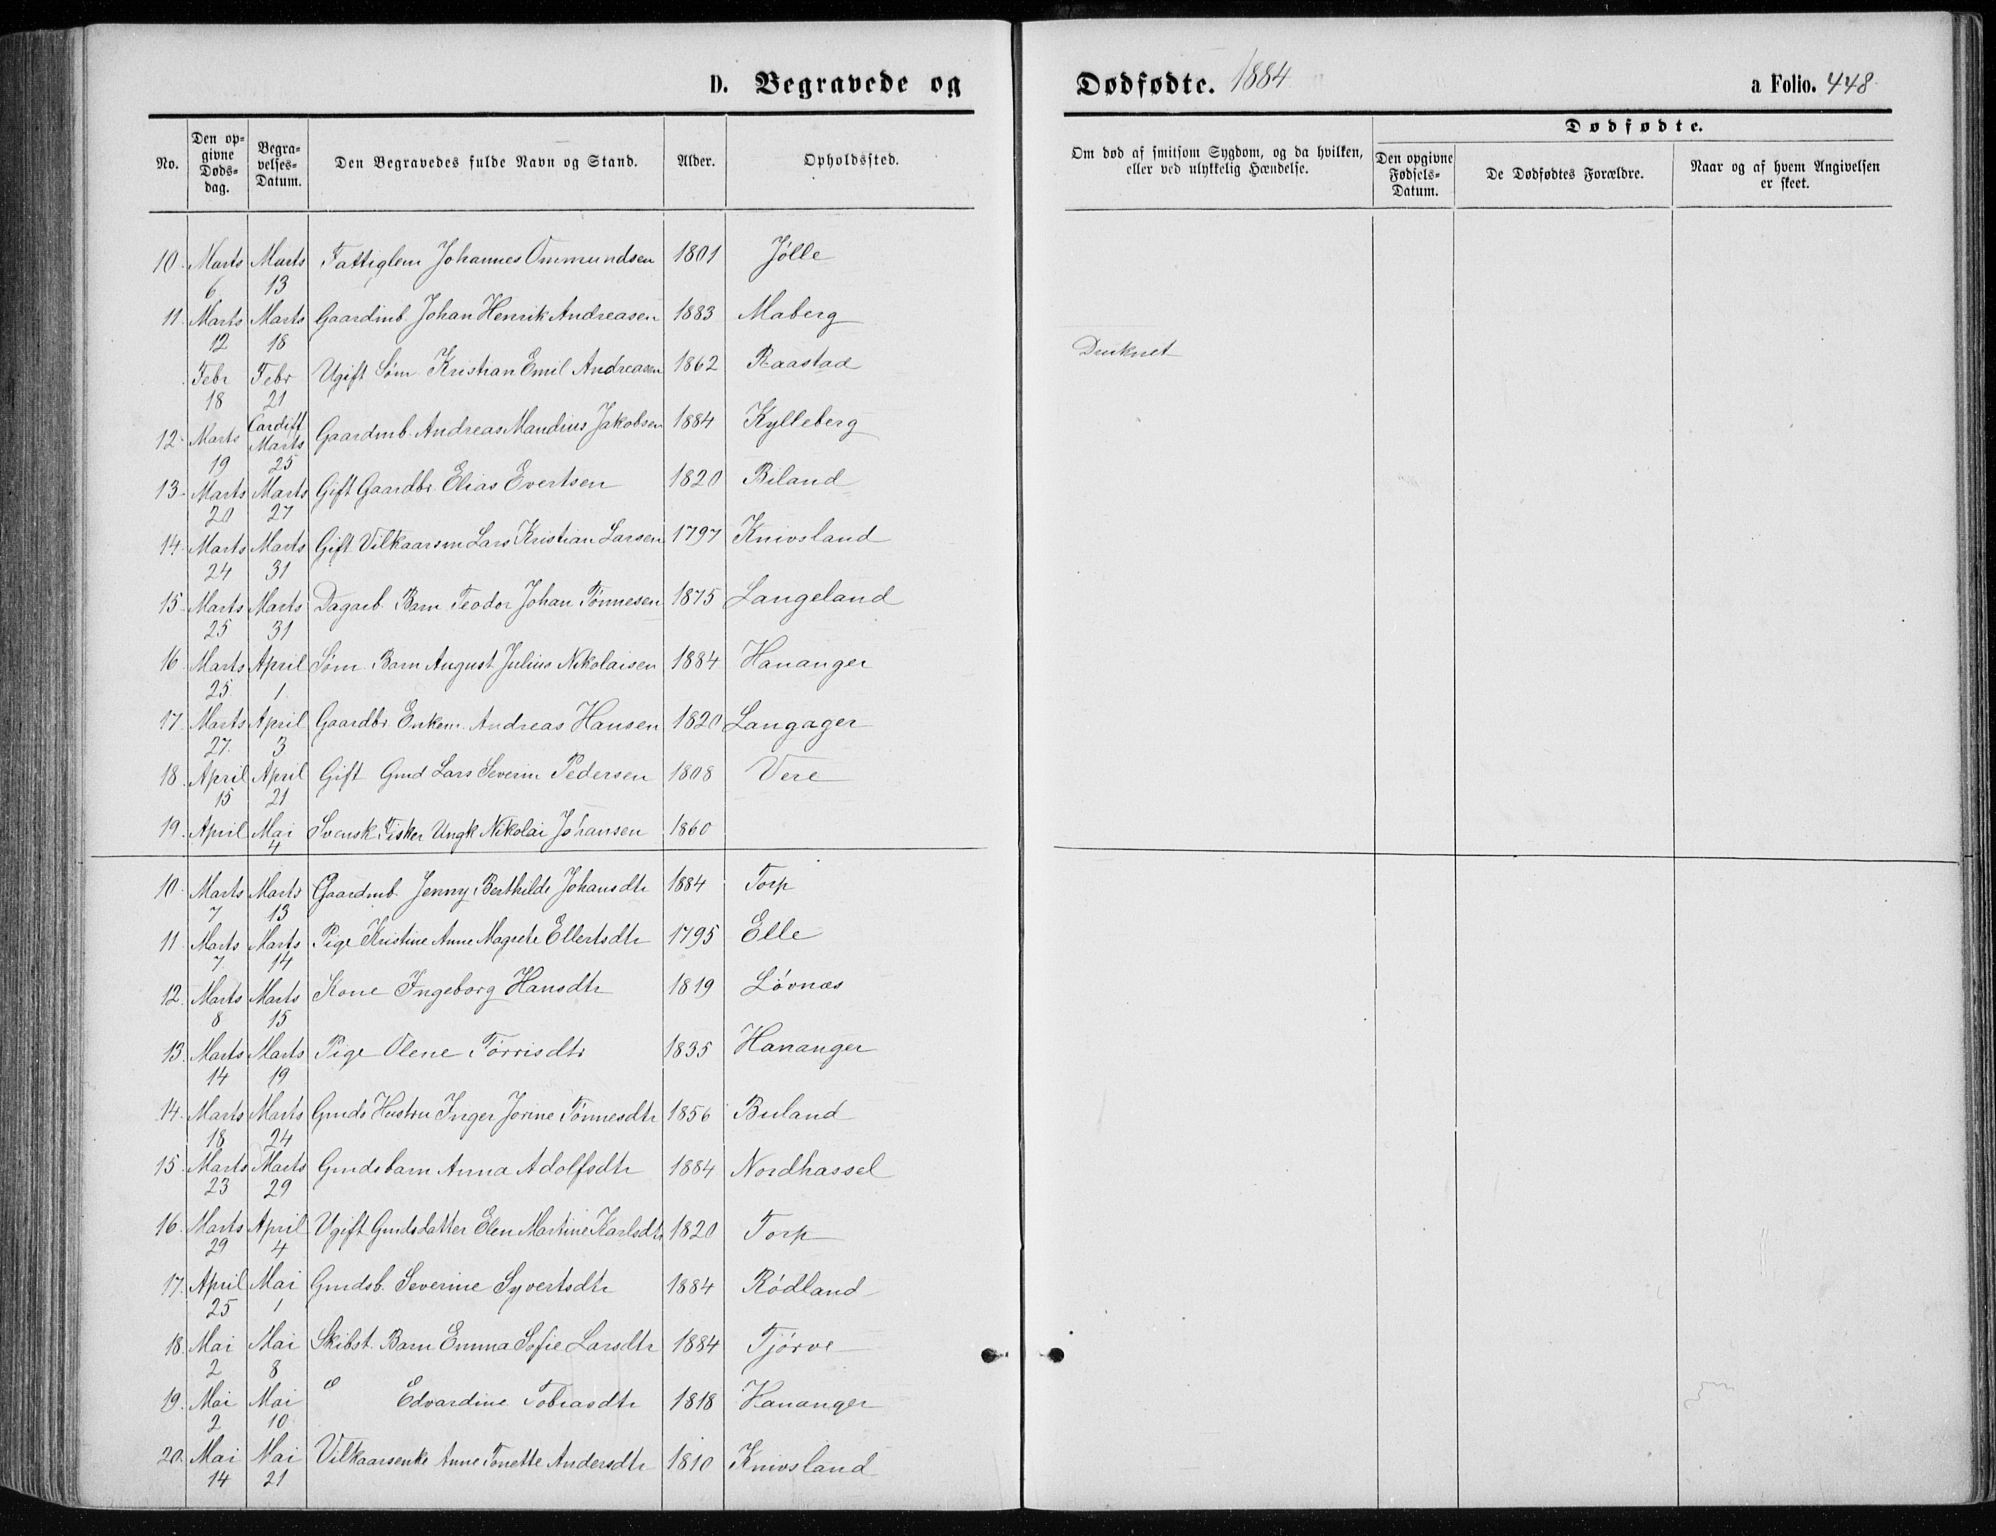 D. Begravede og Dødfødte. 1884 a Folio. 448.
No. Den opgivne Døds-dag. Begravelses-Datum. Den Begravedes fulde Navn og Stand. Alder. Opholdssted. Om død af smitsom Sygdom, og da hvilken, eller ved ulykkelig Hændelse. Dødfødte. Den opgivne Fødsels-Datum. De Dødfødtes Forældre. Naar og af hvem Angivelsen er skeet.
10. Marts 6 Marts 13 Fattiglem Johannes Ommundsen 1801 Jølle
11. Marts 12 Marts 18 Gaardmb. Johan Henrik Andreasen 1883 Maberg
Febr 18 Febr 21 Cardiff Ugift Søm. Kristian Emil Andreasen 1862 Raastad Druknet
12. Marts 19 Marts 25 Gaardmb. Andreas Mandius Jakobsen 1884 Kylleberg
13. Marts 20 Marts 27 Gift Gaardbr. Elias Evertsen 1820 Biland
14. Marts 24 Marts 31 Gift Vilkaarsm Lars Kristian Larsen 1797 Knivsland
15. Marts 25 Marts 31 Dagarb. Barn Teodor Johan Tønnesen 1875 Langeland
16. Marts 25 April 1 Søm. Barn August Julius Nikolaisen 1884 Hananger
17. Marts 27. April 3 Gaardbr. Enkem. Andreas Hansen 1820 Langager
18. April 15 April 21 Gift Gmd Lars Severin Pedersen 1808 Vere
19. April Mai 4 Svensk Fisker Ungk Nikolai Johansen 1860
10. Marts 7 Marts 13 Gaardmb. Jenny Berthilde Johansdtr 1884 Torp
11. Marts 7 Marts 14 Pige Kristine Anne Magrete Ellertsdtr 1795 Elle
12. Marts 8 Marts 15 Kone Ingeborg Hansdtr 1819 Løvnæs
13. Marts 14 Marts 19 Pige Olene Tørrisdtr 1835 Hananger
14. Marts 18 Marts 24 Gmds Hustru Inger Jorine Tønnesdtr 1856 Buland
15. Marts 23 Marts 29 Gmdsbarn Anna Adolfsdtr 1884 Nordhassel
16. Marts 29 April 4 Ugift Gmdsdatter Elen Martine Karlsdtr 1820 Torp
17. April 25 Mai 1 Gmdsb. Severine Syvertsdtr 1884 Rødland
18. Mai 2 Mai 8 Skibst. Barn Emma Sofie Larsdtr 1884 Tjørve
19. Mai 2 Mai 10 E Edvardine Tobiasdtr 1818 Hananger
20. Mai 14 Mai 21 Vilkaarsenke Anne Tonette Andersdtr 1810 Knivsland